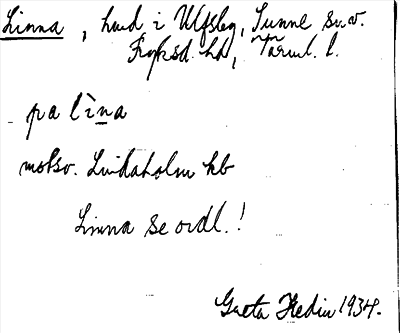 Linna, hmd i Ulfsby, Sunne sn.v.
Fryksd. hd, Värml. l.
pa lìna
motsv. Lindaholm kb
Linna se ordl.!
Greta Hedin 1934.